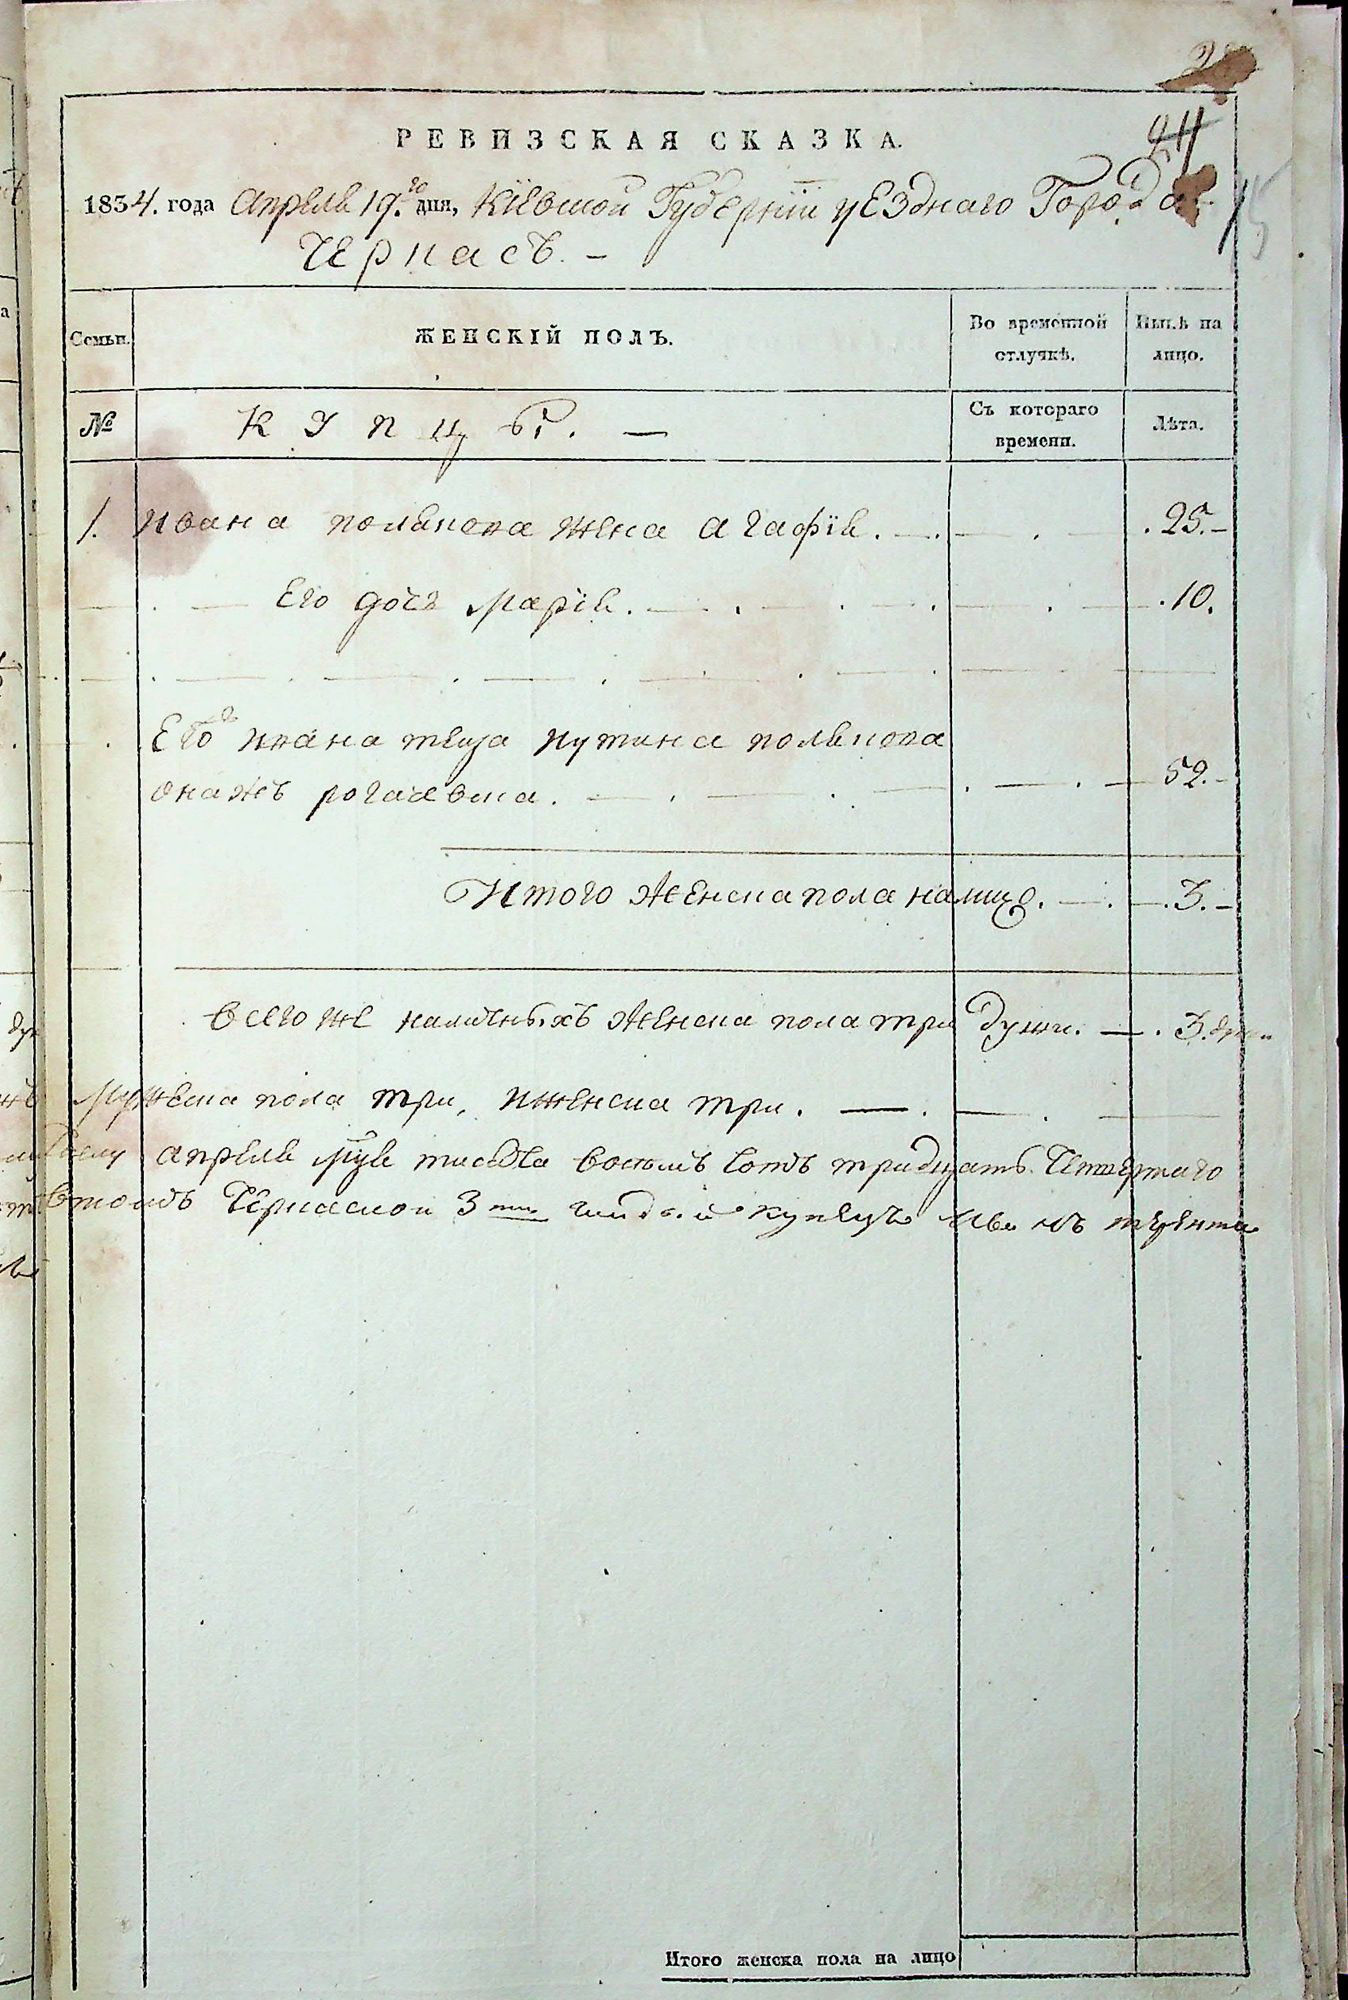 24
РЕВИЗСКАЯ СКАЗКА.
1834. года Апреля 19.го дня, Кіевской Губерніи уезднаго Города
Черкасъ. –
Семьи. ЖЕНСКІЙ ПОЛЪ. Во временной отлучкѣ. Нынѣ на лицо.
№ Купцы. — Съ котораго времени. Лѣта.
1. Ивана полякова жена агафія. 25.
Его дочь марія. 10.
Его Ивана теща полякова
онажъ рогачевска. 52.
Итого женска пола налицо. 3.
всего же наличныхъ женска пола три души. 3. души
мужеска пола три, иженска три.
апреля дня тисяча восемъ сотъ тридцать Четвертаго
Черкаской 3 купецъ
Итого женска пола на лицо